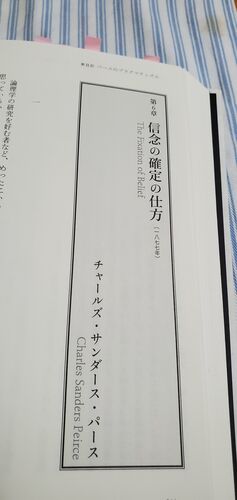 第Ⅱ部 パースのプラグマティズム
第6章 信念の確定の仕方(一八七七年)
The Fixation of Belief
チャールズ・サンダース・パース
Charles Sanders Peirce
一
論理学の研究を好む者など、めったに
思って